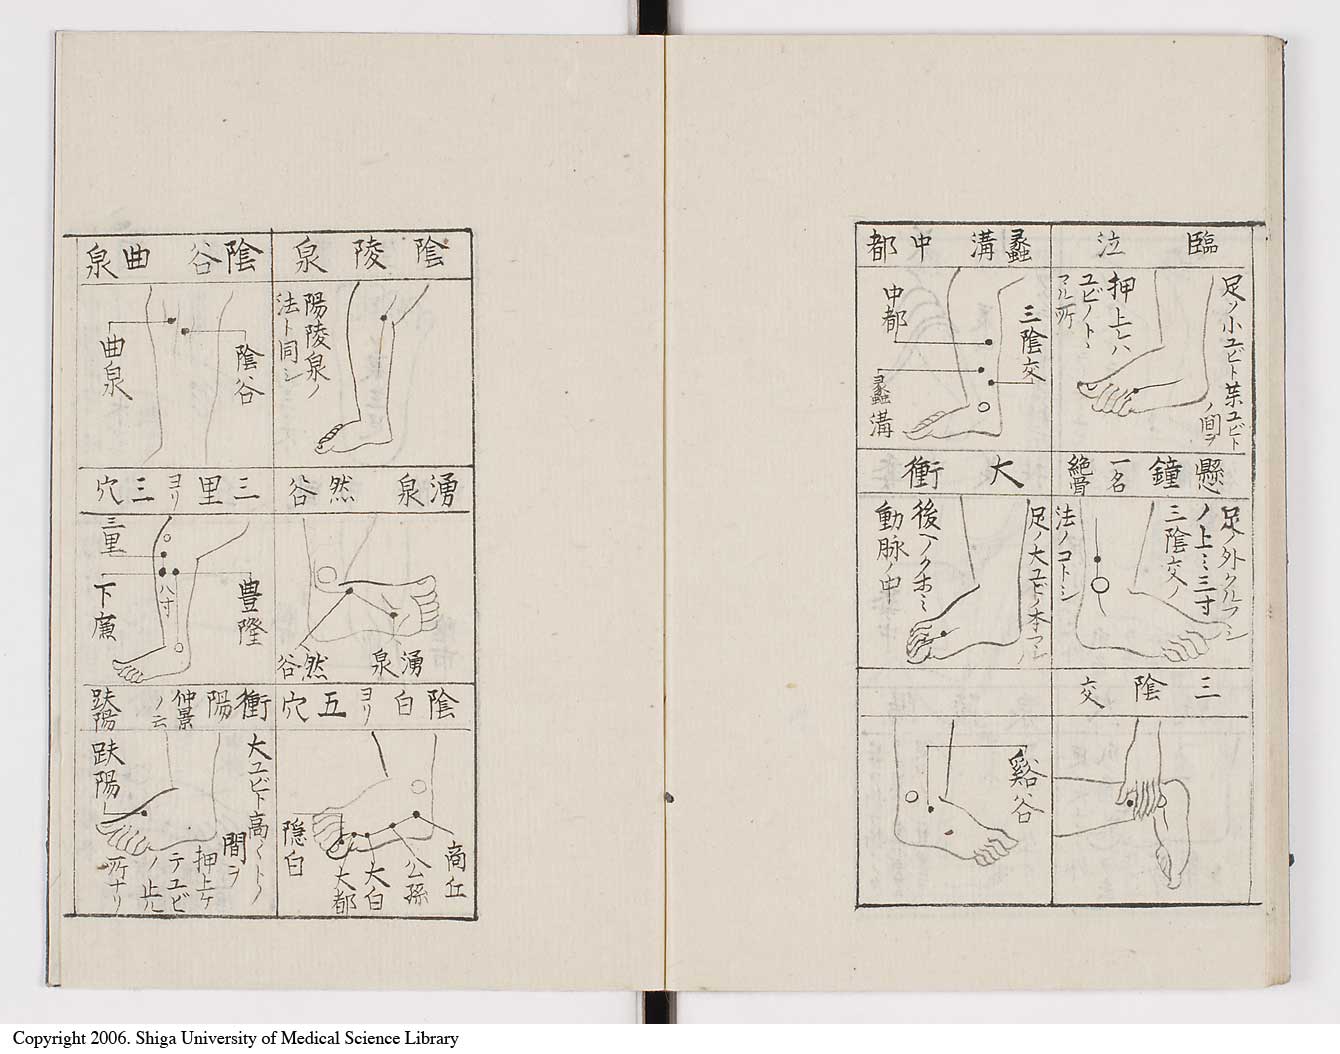 臨泣
足ノ小ユビト第ユビト
ノ間ヲ
押上レハ
ユビノトヽ
マル所
蠡溝中都
三陰交
中都
蠡溝
懸鐘一名絶骨
足ノ外クルブシ
ノ上ミ三寸
三陰交ノ
法ノコトシ
大衝
足ノ大ユビノ本
後ヘノクホミ
動脉ノ中
三陰交
谿谷
陰陵泉
陽陵泉ノ
法ト同シ
陰谷曲泉
陰谷
曲泉
湧泉然谷
湧泉
然谷
三里ヨリ三穴
三里
八寸
豊隆
下廉
陰白ヨリ五穴
商丘
公孫
大白
大都
隠白
衝陽仲景ノ云趺陽
大ユビト高
間ヲ
押上ケ
テユビ
ノ止ル
所ナリ
趺陽
Copyright 2006. Shiga University of Medical Science Library